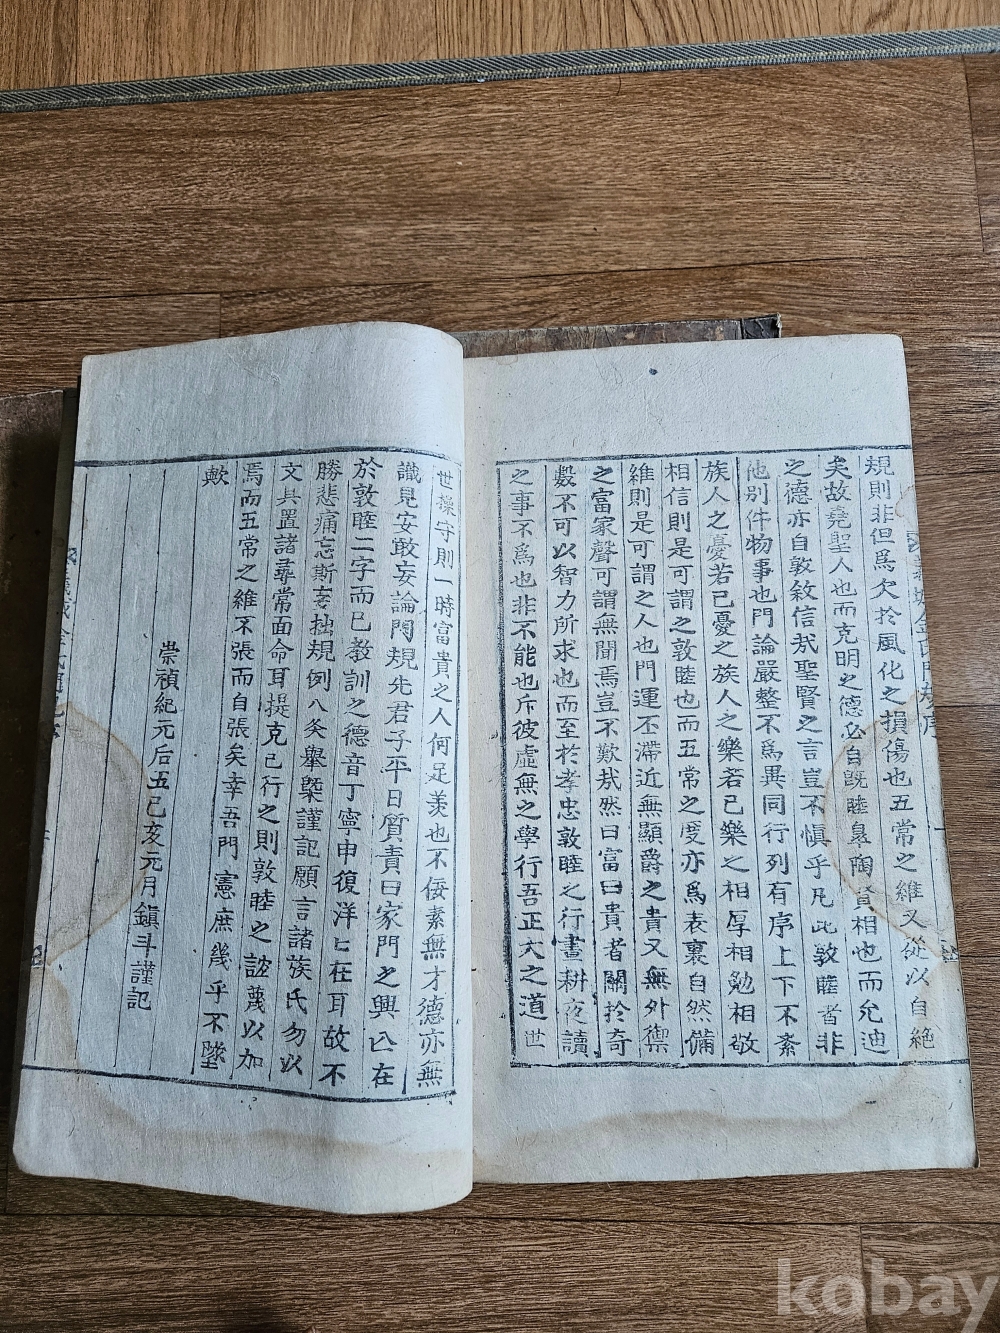 規則非但爲欠於風化之損傷也五常之維又從以自絶
矣故堯聖人也而克明之德必自旣睦皐陶賢相也而允迪
之德亦自敦敘信㢤聖賢之言豈不愼乎凡此敦睦者非
他別件物事也門論嚴整不爲異同行列有序上下不紊
族人之憂若已憂之族人之樂若已樂之相厚相勉相敬
相信則是可謂之敦睦也而五常之度亦爲表裏自然備
維則是可謂之人也門運丕滯近無顯爵之貴又無外禦
之富家聲可謂無聞焉豈不歎㢤然曰富曰貴者關於奇
數不可以智力所求也而至於孝忠敦睦之行晝耕夜讀
之事不爲也非不能也斥彼虛無之學行吾正大之道 世
世操守則一時富貴之人何足羡也不佞素無才德亦無
識見安敢妄論門規先君子平日質責曰家門之興亡在
於敦睦二字而已敎訓之德音丁寧申復洋匕在耳故不
勝悲痛忘斯妄拙規例八条擧槩謹記願言諸族氏勿以
文具置諸尋常面命耳提克己行之則敦睦之誼蔑以加
焉而五常之維不張而自張矣幸吾門憲庶幾乎不墜
歟
崇禎紀元后五己亥元月鎭斗謹記
kobay